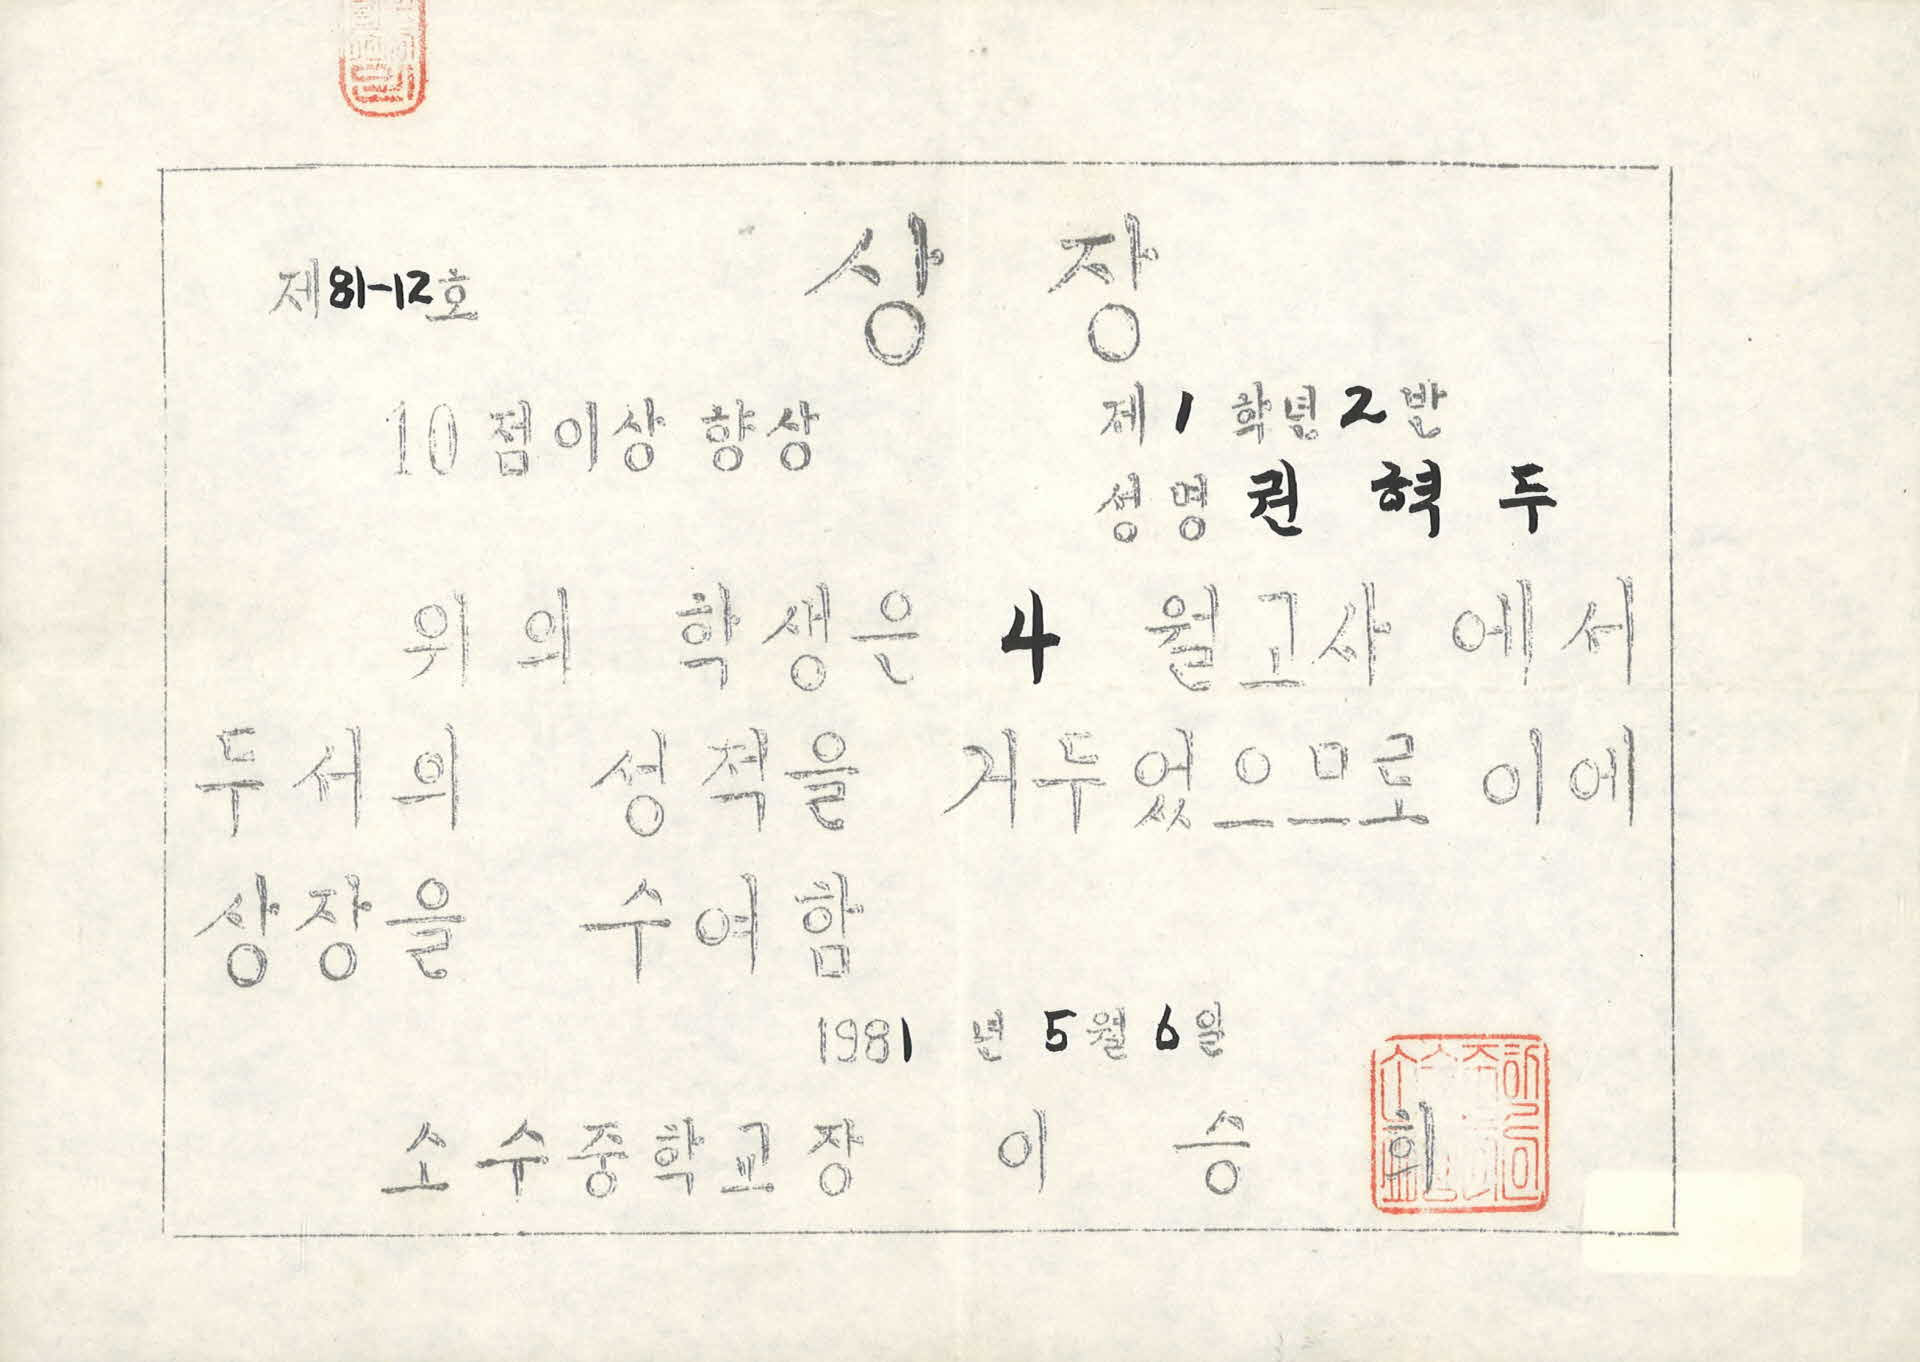 상장
제81-12호
10점이상 향상
제1학년2반
성명 권혁두
위의 학생은 4월고사에서
두서의 성적을 거두었으므로 이에
상장을 수여함
1981년 5월 6일
소수중학교장 이승희